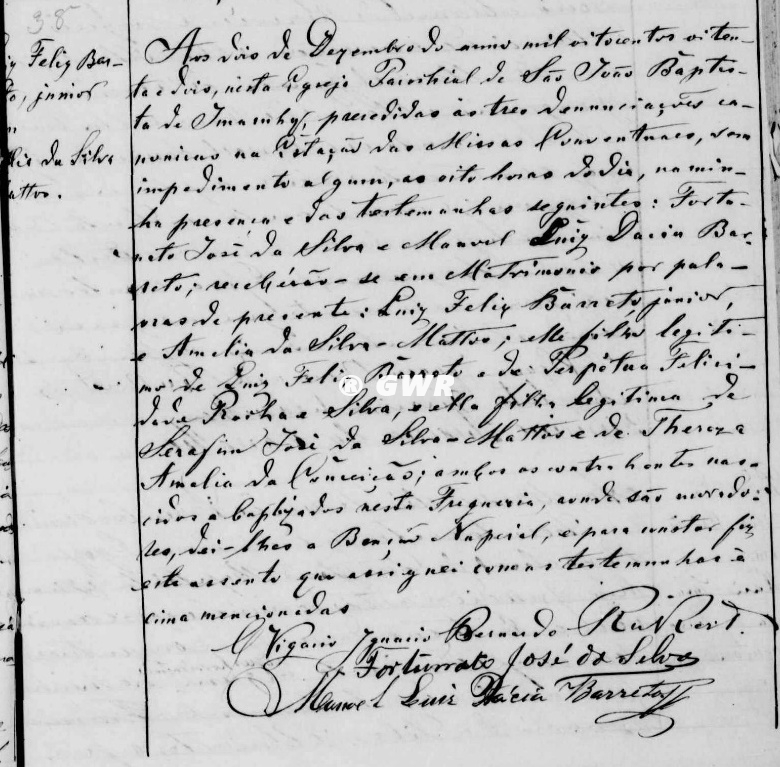 38
Feliz Bar-
to, junior
da Silva
attos.
Aos dois de Dezembro do anno mil oitocentos oiten-
ta e dois, nesta Egreja Parochial de São João Baptis-
ta de Imaruhy, precedidas as tres denunciações ca-
nonicas na Estação das Missas Conventuaes, sem
impedimento algum, as oito horas do dia, na min-
ha presença e das testemunhas seguintes: Fortu-
nato José da Silva e Manoel Luiz Dacia Bar-
reto; receberão-se em Matrimonio por pala-
vras de presente: Luiz Feliz Barreto, junior,
e Amelia da Silva Mattos; elle filho legiti-
mo de Luiz Feliz Barreto e de Perpétua Felici-
dade Rocha e Silva, e ella filha legitima de
Serafim José da Silva Mattos e de Thereza
Amelia da Conceição; ambos os contrahentes nas-
cidos e baptizados nesta Freguezia, aonde são morado-
res, dei-lhes a Benção Nupcial, e para constar fiz
este assento que assignei com as testemunhas a
cima mencionadas
O Vigario Ignacio Bernardo
Fortunato José da Silva
Manoel Luiz Dácia Barreto
® GWR